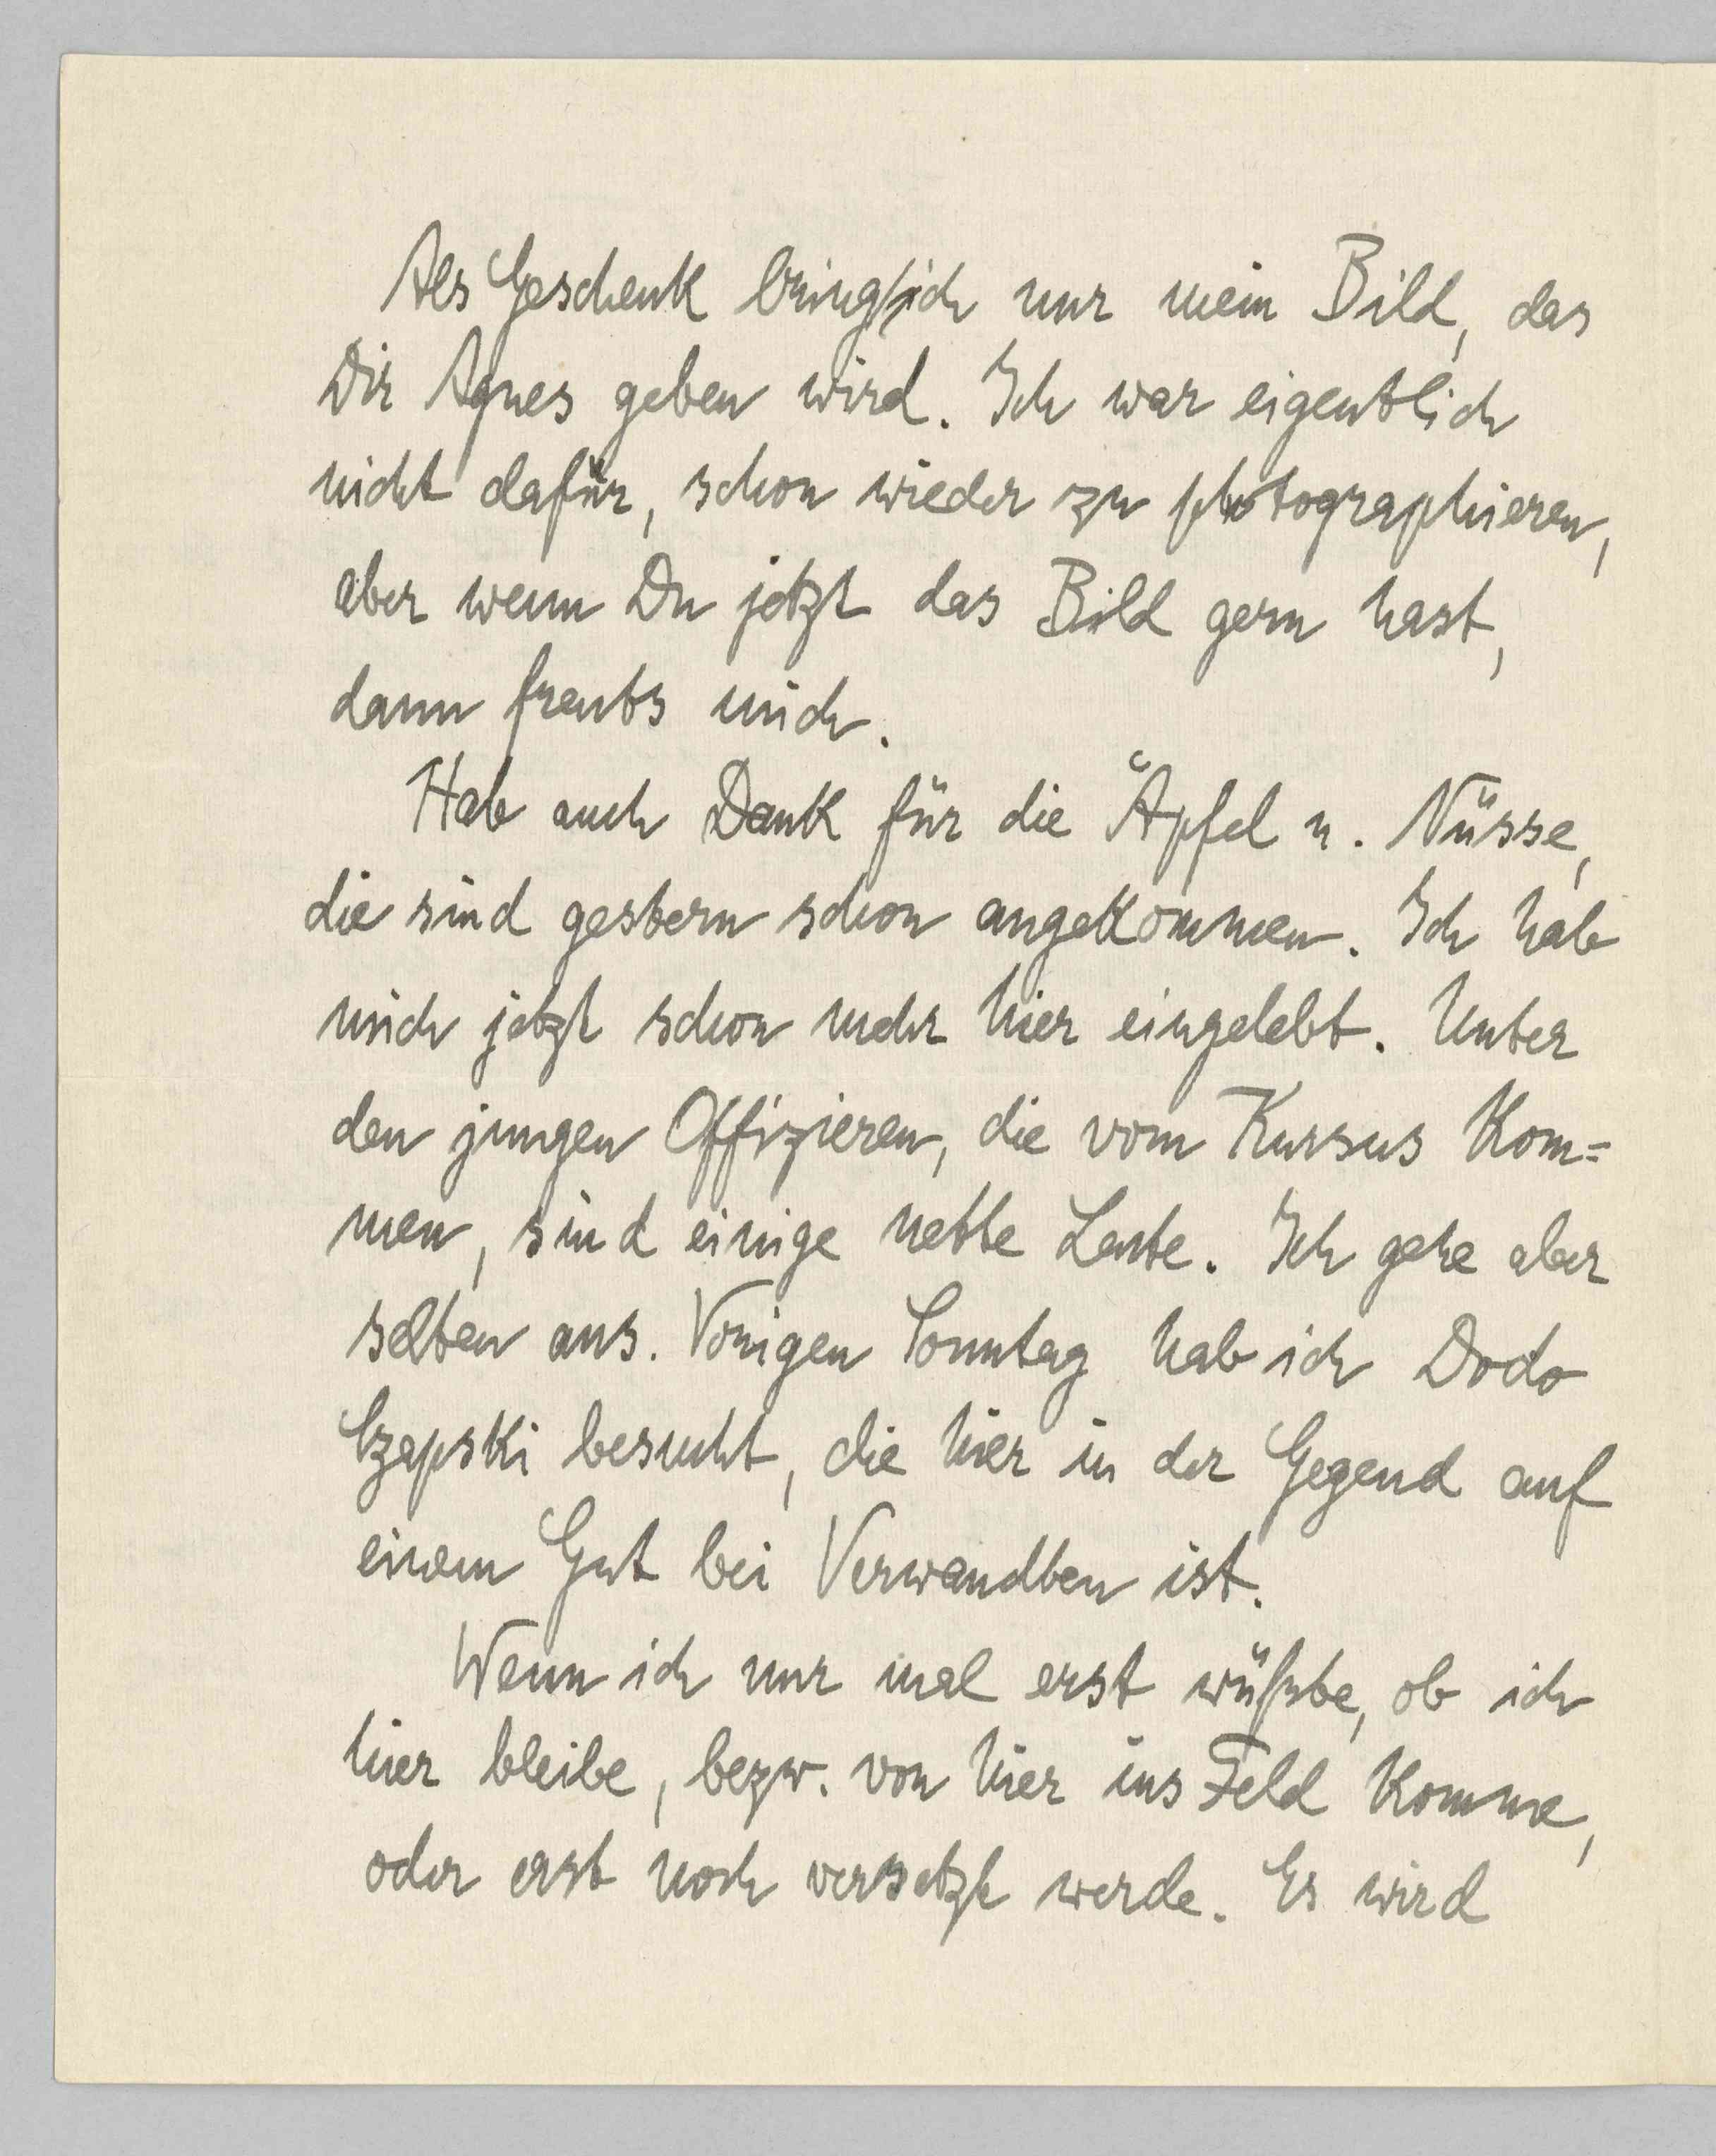 Als Geschenk bring ich nur mein Bild, das
Dir Agnes geben wird. Ich war eigentlich
nicht dafür, schon wieder zu photographieren,
aber wenn Du jetzt das Bild gern hast,
dann freuts mich.
Hab auch Dank für die Äpfel u. Nüsse,
die sind gestern schon angekommen. Ich hab
mich jetzt schon mehr hier eingelebt. Unter
den jungen Offizieren, die vom Kursus kom=
men, sind einige nette Leute. Ich gehe aber
selten aus. Vorigen Sonntag hab ich Dodo
Czapski besucht, die hier in der Gegend auf
einem Gut bei Verwandten ist.
Wenn ich nur mal erst wüßte, ob ich
hier bleibe, bezw. von hier ins Feld komme,
oder erst noch versetzt werde. Es wird